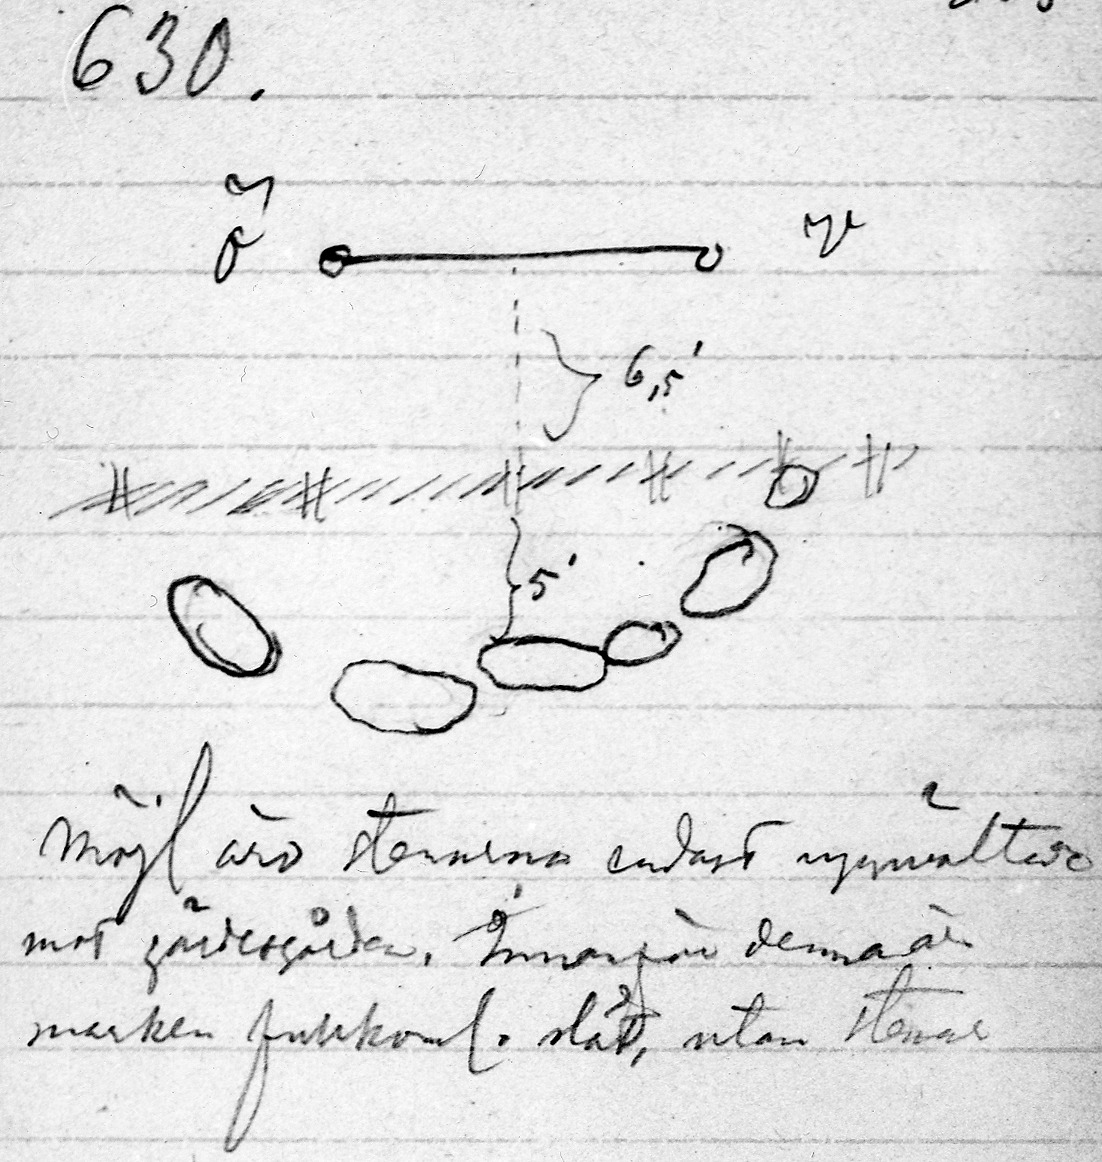 630.
ö
v
6,5'
5'
Möjl äro stenarna endast uppvältade
mot gärdesgården. Innanför denna är
marken fullkoml. slät, utan stenar